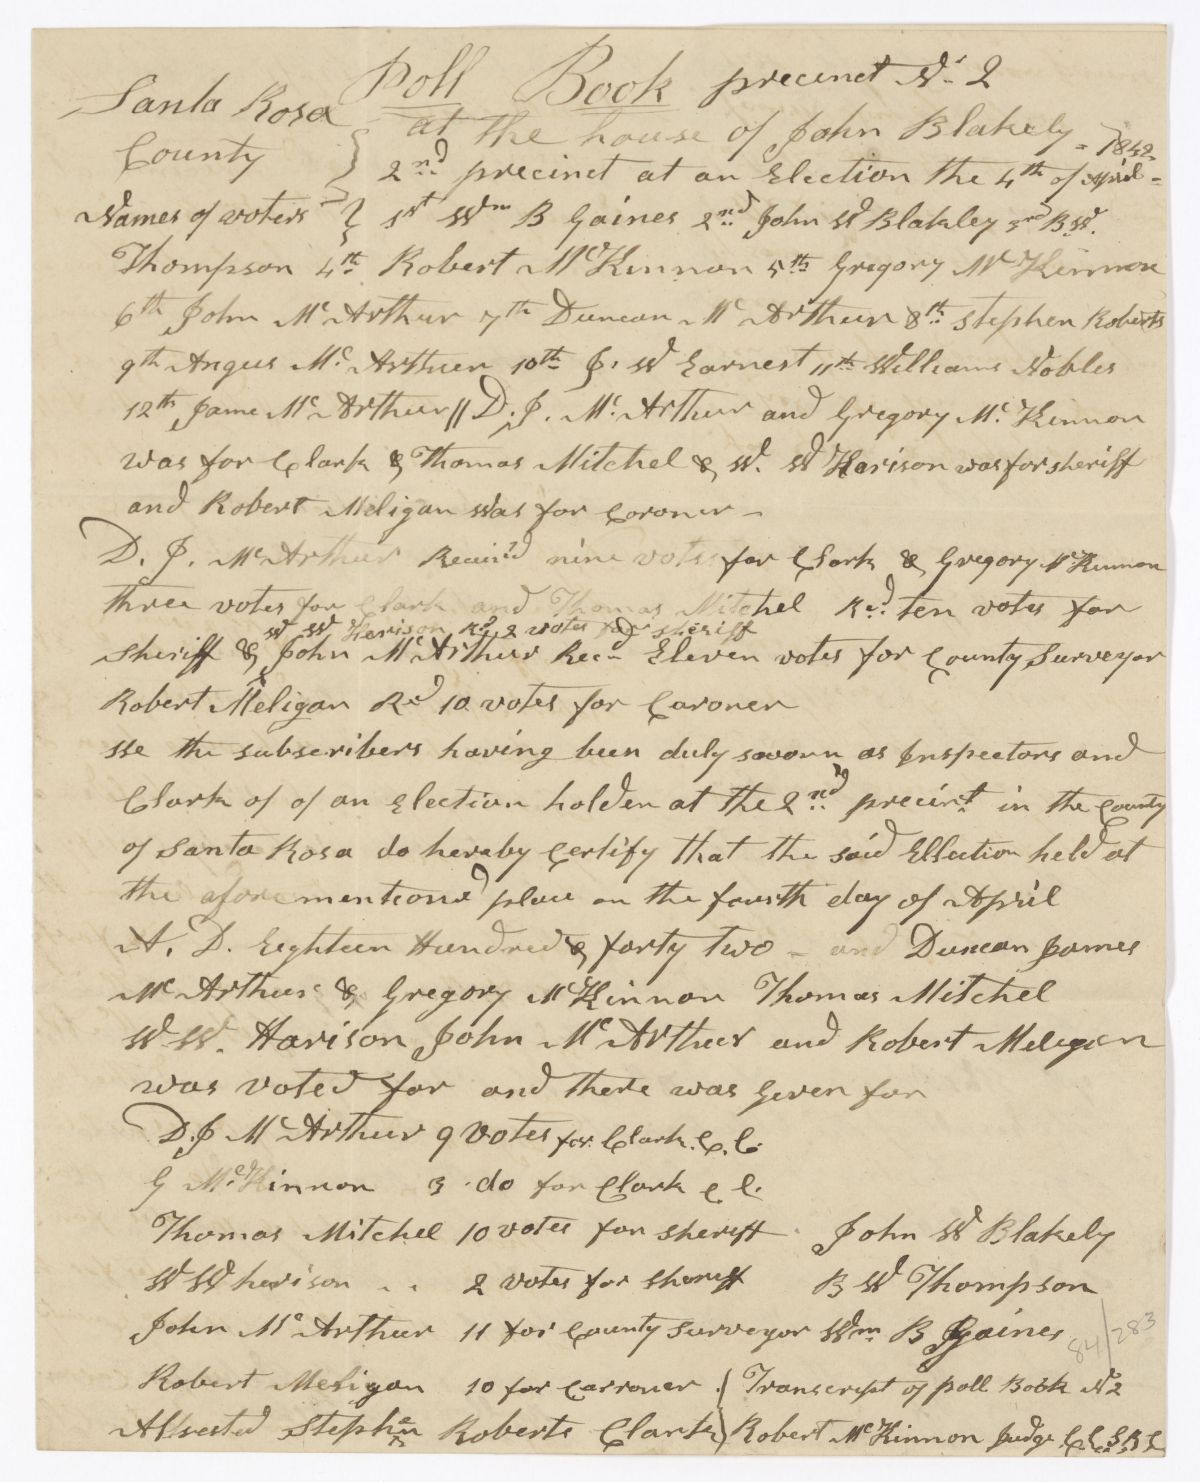 Poll Book precinct No 2
Santa Rosa } at the house of John Blakely - 1842
County } 2nd precinct at an Election the 4th of April -
Names of voters } 1st Wm B Gaines 2nd John W Blakley 3rd B.W.
Thompson 4th Robert McKinnon 5th Gregory McKinnon
6th John McArthur 7th Duncan McArthur 8th Stephen Roberts
9th Angus McArthur 10th J. W Earnest 11th Williams Nobles
12th Jame McArthur // D. J. McArthur and Gregory McKinnon
was for Clark & Thomas Mitchel & W. W Harison was for sheriff
and Robert Meligan Was for Coroner -
D. J. McArthur Receivd nine votes for Clark & Gregory McKinnon
three votes for Clark and Thomas Mitchel Red ten votes for
W W Harison Rd 2 votes for sheriff
Sheriff & John McArthur Recd Eleven votes for County Surveyor
Robert Meligan Rd 10 votes for Caroner
We the subscribers having been duly sworn as Inspectors and
Clark of of an Election holden at the 2nd precinct in the County
of Santa Rosa do heraby Certify that the said Ellection held at
the aforementiond place on the fourth day of April
A. D. Eighteen Hundred & forty two - and Duncan James
McArthur & Gregory McKinnon Thomas Mitchel
W W. Harison John McArthur and Robert Meligan
was voted for and there was Given for
D. J McArthur 9 Votes for Clark. C. C.
G McKinnon 3 do for Clark C C.
Thomas Mitchel 10 votes for Sheriff John W Blakely
W W harison " " 2 votes for Sheriff B W Thompson
John McArthur 11 for County Surveyor Wm B Gaines
84/283
Robert Meligan 10 for Carroner ( Transcript of poll Book No 2
Attested Stephen Roberts Clark ) Robert McKinnon Judge C. C. S R C